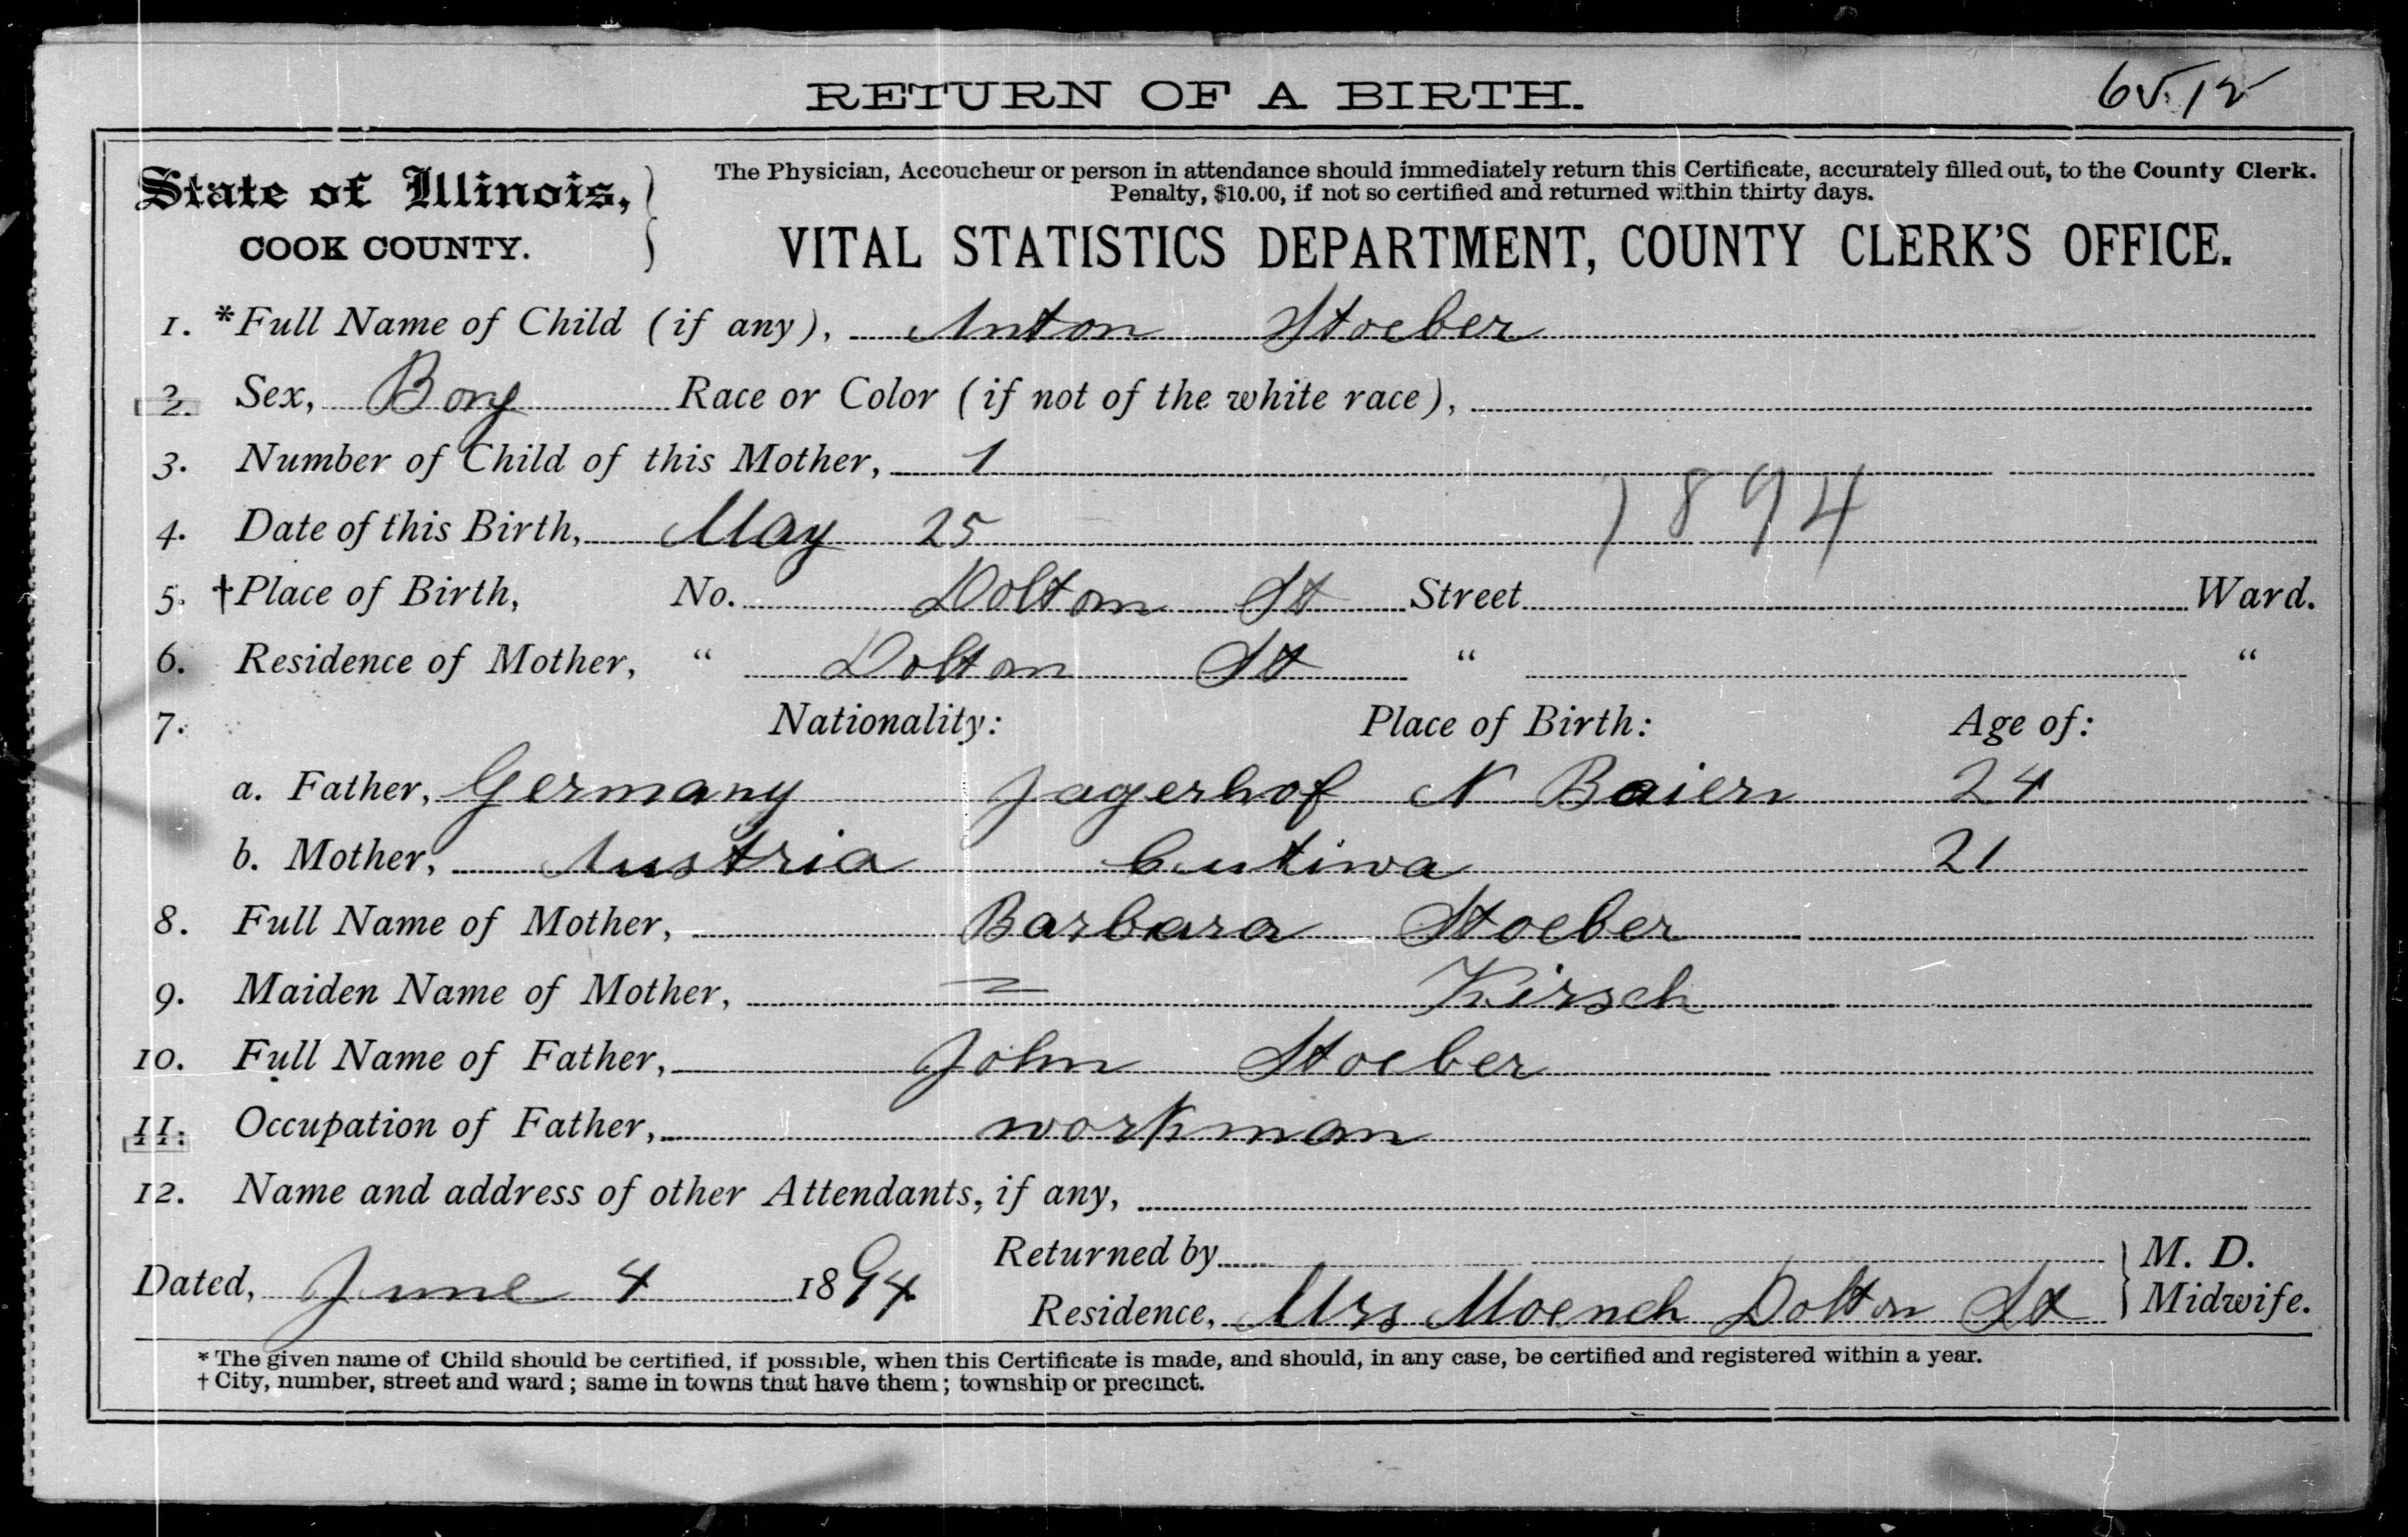 RETURN OF A BIRTH. 6512
State of Illinois,
COOK COUNTY.
The Physician, Accoucheur or person in attendance should immediately return this Certificate, accurately filled out, to the County Clerk.
Penalty, $10.00, if not so certified and returned within thirty days.
VITAL STATISTICS DEPARTMENT, COUNTY CLERK'S OFFICE.
1. *Full Name of Child (if any), Anton Stoeber
2. Sex, Bony Race or Color (if not of the white race),
3. Number of Child of this Mother, 1
4. Date of this Birth, May 25 1894
5. †Place of Birth, No. Dolton St Street Ward.
6. Residence of Mother, " Dolton St " "
7. Nationality: Place of Birth: Age of:
a. Father, Germany Jagerhof N Baiern 24
b. Mother, Austria 21
8. Full Name of Mother, Barbara Stoeber
9. Maiden Name of Mother, Kirsch
10. Full Name of Father, John Stoeber
11. Occupation of Father, workman
12. Name and address of other Attendants, if any,
Dated, June 4 1894
Returned by M. D.
Residence, Mrs Moench Dolton St Midwife.
* The given name of Child should be certified, if possible, when this Certificate is made, and should, in any case, be certified and registered within a year.
† City, number, street and ward; same in towns that have them; township or precinct.